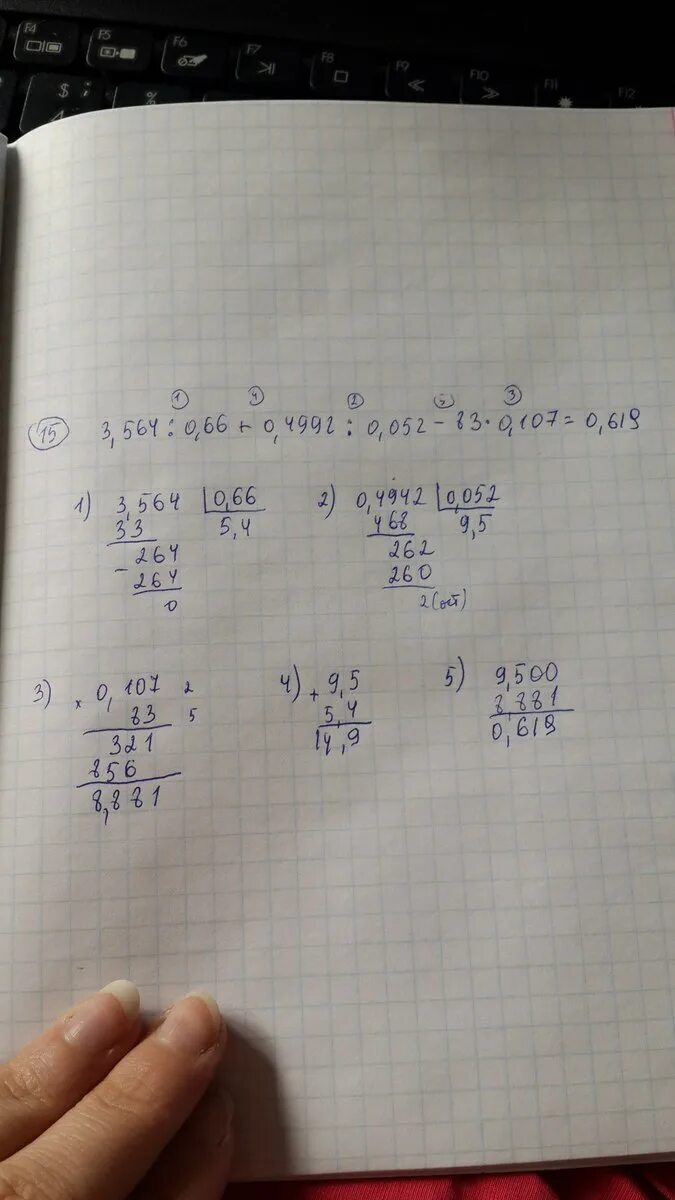 F4 F5 F6 F7 F8 F9 F10 F11 F12
$ ; %
① ④ ② ⑤ ③
15 3,564 : 0,66 + 0,4992 : 0,052 - 83 · 0,107 = 0,619
1) 3,564 | 0,66
33 5,4
- 264
264
0
2) 0,4942 | 0,052
468 9,5
262
260
2 (ост)
3) × 0,107 2
83 5
321
856
8,881
4) + 9,5
5,4
14,9
5) 9,500
8,881
0,619